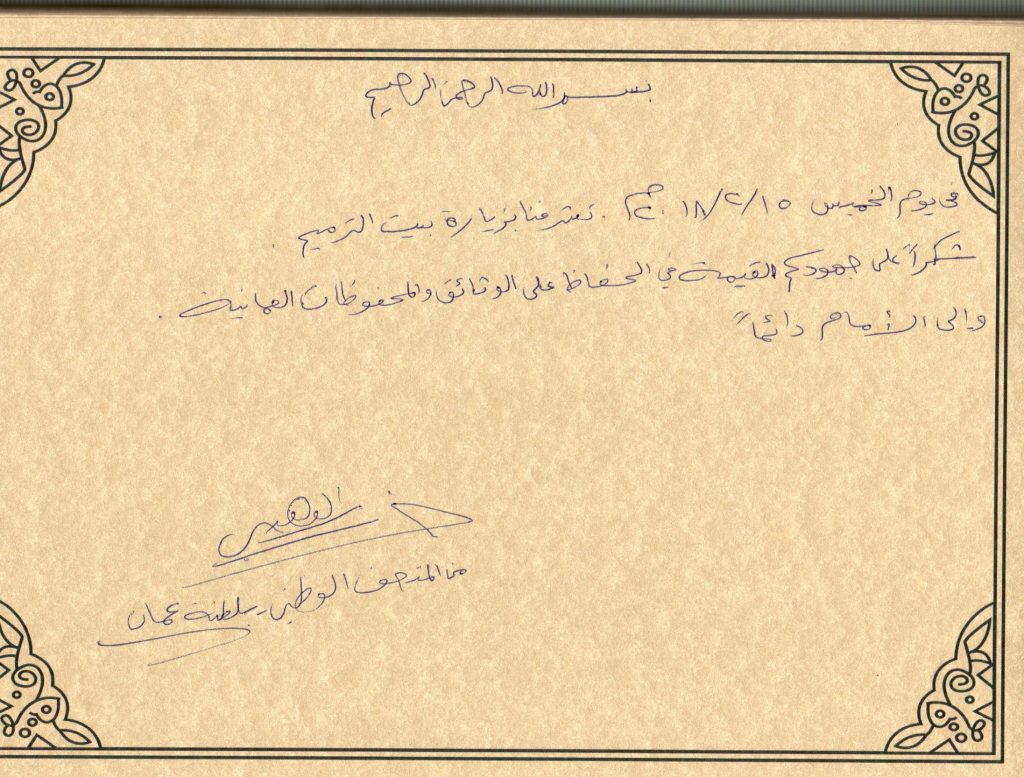 بسم الله الرحمن الرحيم
في يوم الخميس ١٥/٢/٢٠١٨م. تشرفنا بزيارة بيت الترميم.
شكراً على جهودكم القيمة في الحفاظ على الوثائق والمحفوظات العمانية.
وإلى الأمام دائماً
الوهيبي
من المتحف الوطني - سلطنة عمان